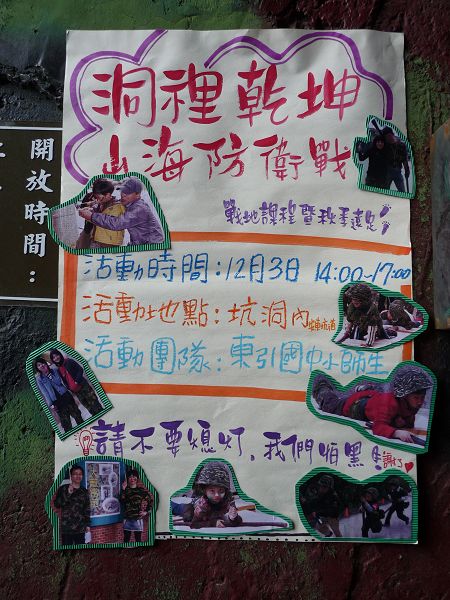 洞裡乾坤
山海防衛戰
戰地課程暨秋季遠足
開放時間:
活動時間:12月3日 14:00~17:00
活動地點:坑洞內
活動團隊:東引國中小師生
請不要熄灯,我們怕黑!謝了